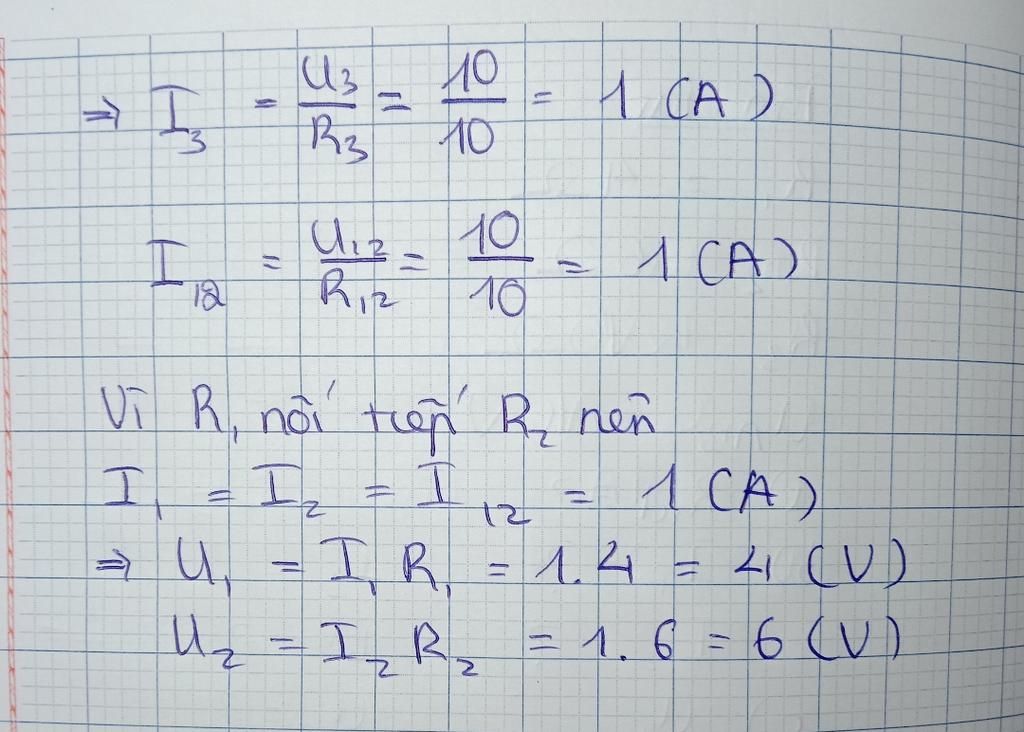 ⇒ I₃ = U₃/R₃ = 10/10 = 1 (A)
I₁₂ = U₁₂/R₁₂ = 10/10 = 1 (A)
Vì R₁ nối tiếp R₂ nên
I₁ = I₂ = I₁₂ = 1 (A)
⇒ U₁ = I₁ R₁ = 1.4 = 4 (V)
U₂ = I₂ R₂ = 1.6 = 6 (V)